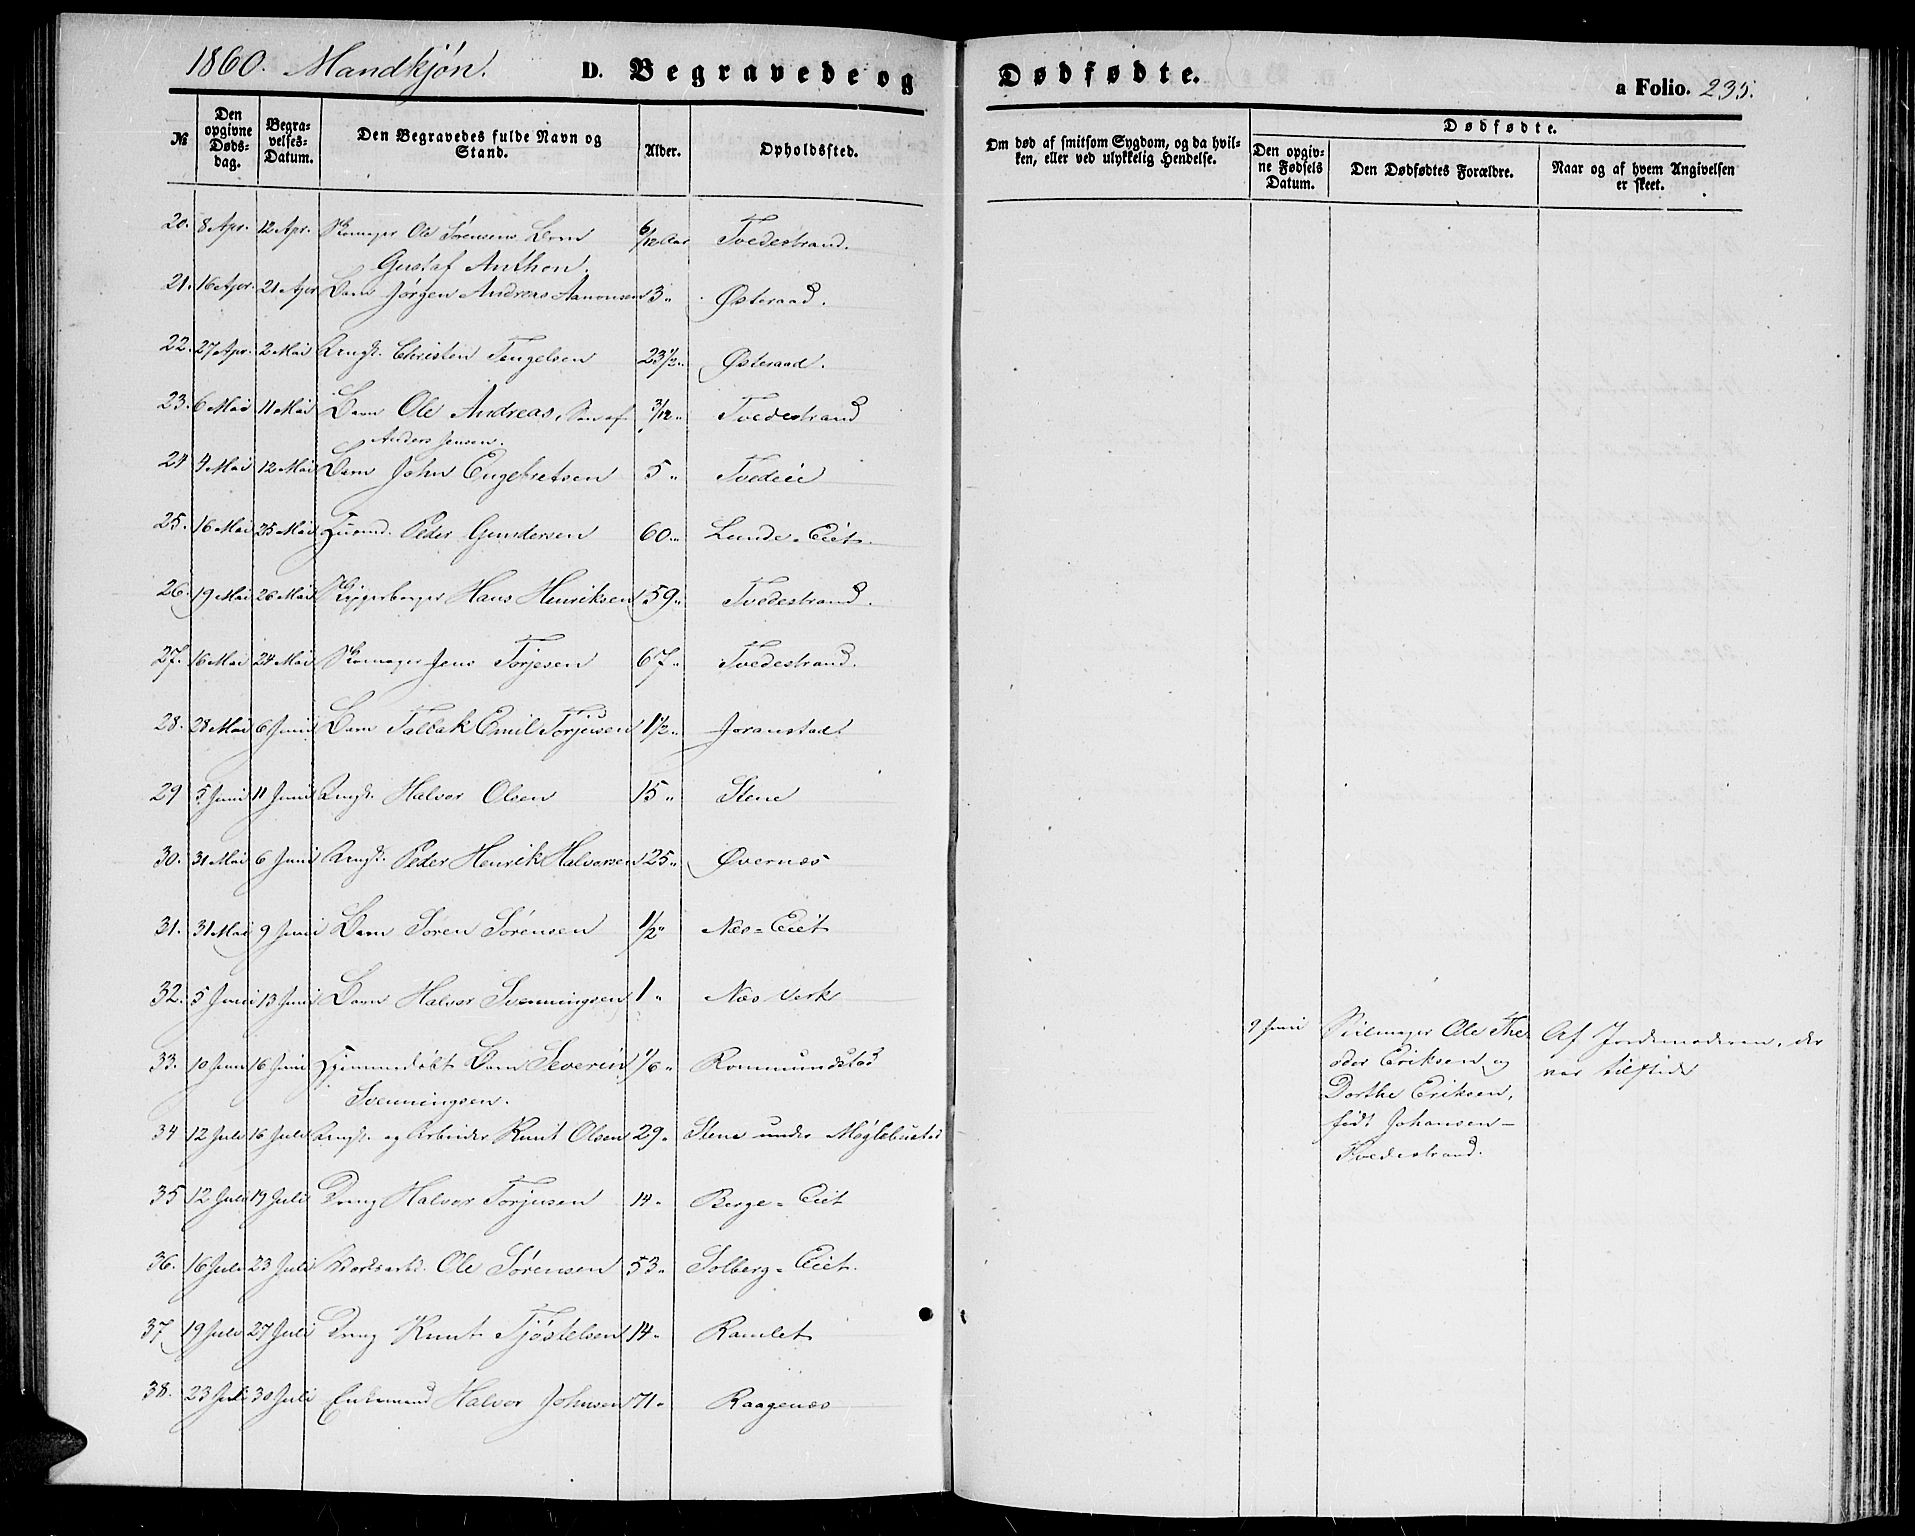 1860. Mandkjøn. D. Begravede og Dødfødte. a Folio. 235.
№ Den opgivne Dødsdag. Begravelses-Datum. Den Begravedes fulde Navn og Stand. Alder. Opholdssted. Om død af smitsom Sygdom, og da hvilken, eller ved ulykkelig Hendelse. Dødfødte. Den opgivne Fødsels Datum. Den Dødfødtes Forældre. Naar og af hvem Angivelsen er skeet.
20. 8 Apr. 12 Apr. Skomager Ole Sørensens Barn 6/12 Aar Tvedestrand.
Gustaf Anthon.
21. 16 Apr. 21 Apr Barn Jørgen Andreas Aanonsen 3 " Østeraad.
22. 27 Apr. 2 Mai Ungk. Christen Tengelsen 23½ " Østeraad.
23. 6 Mai 11 Mai Barn Ole Andreas, Søn af 3/12 " Tvedestrand
Anders Jensen.
24 4 Mai 12 Mai Barn John Engebretsen 5 " Tvedeie
25. 16 Mai 25 Mai Huusmd. Peder Gundersen 60 " Lunde-Eiet.
26. 19 Mai 26 Mai Hans Henriksen 59 " Tvedestrand.
27. 16 Mai 24 Mai Skomager Jens Torjesen 67 " Tvedestrand.
28. 28 Mai 6 Juni Barn Tallak Emil Torjusen 1½ " Joranstad
29 5 Juni 11 Juni Ungk. Halvor Olsen 15 " Stene
30. 31 Mai 6 Juni Ungk. Peder Henrik Halvorsen 25 " Øvernæs
31. 31 Mai 9 Juni Barn Søren Sørensen ½ " Næs-Eiet
32. 5 Juni 13 Juni Barn Halvor Svenningsen 1 " Næs Verk
33. 10 Juni 16 Juni Hjemmedøbt Barn Severin 1/6 " Rommundstad
Svenningsen.
34 12 Juli 16 Juli Ungk. og Arbeider Knut Olsen 29 " Stene under Møglebustad
35 12 Juli 19 Juli Dreng Halvor Torjusen 14 " Berge-Eiet
36. 16 Juli 23 Juli Ole Sørensen 53 " Solberg-Eiet.
37 19 Juli 27 Juli Dreng Knut Tjøstelsen 14 " Ramlet
38. 23 Juli 30 Juli Enkemand Halvor Johnsen 71 " Raagenæs
9 Juni Seilmager Ole The-
odor Eriksen og
Dorthe Eriksen,
født Johansen -
Tvedestrand.
Af Jordemoderen, der
var tilstede